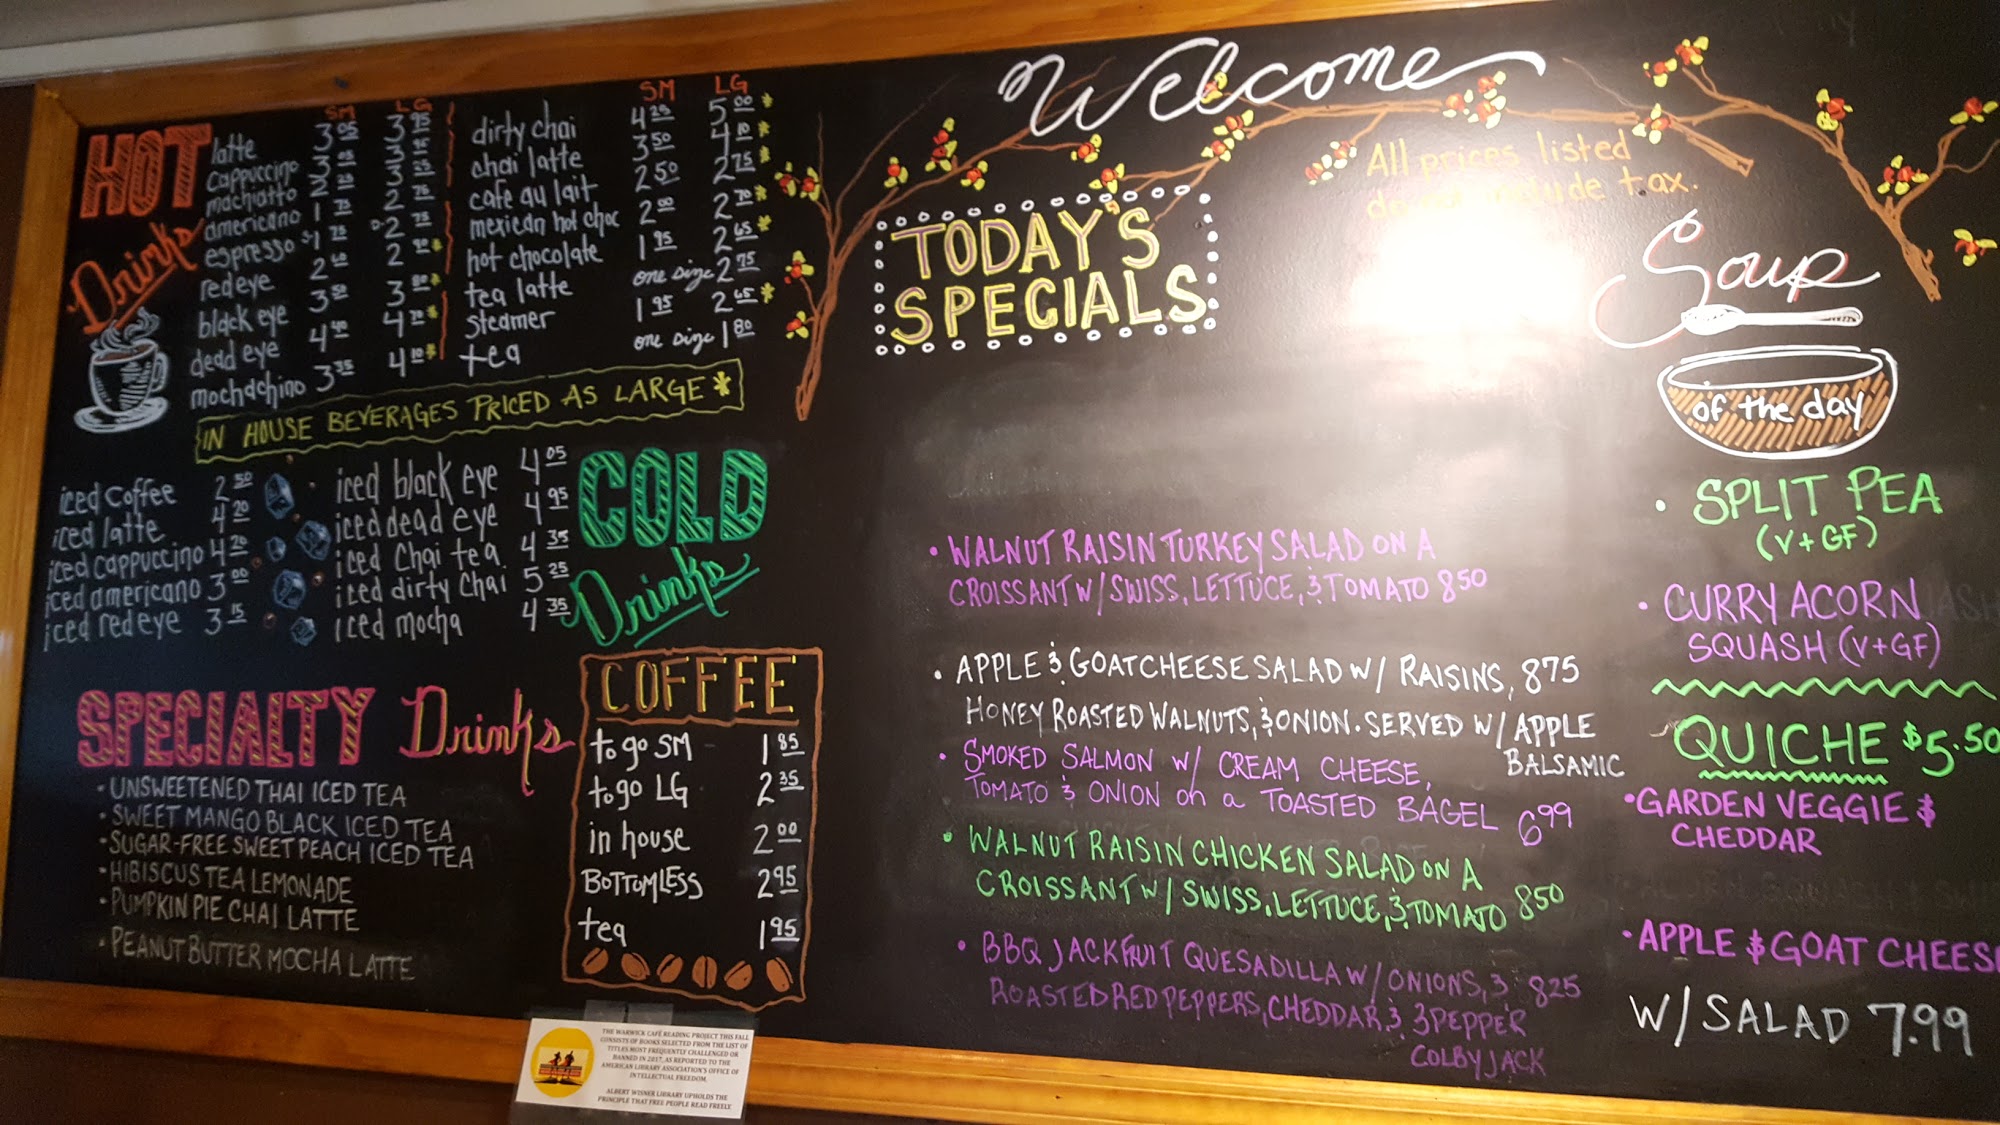 Welcome
All prices listed
do not include tax.
HOT
Drinks
SM LG
latte 3.05 3.95
cappuccino 3.05 3.95
machiatto 2.25 3.25
americano 1.75 2.75
espresso S-1.75 D-2.75
redeye 2.40 2.90*
black eye 3.50 3.80*
dead eye 4.40 4.70*
mochachino 3.35 4.10*
SM LG
dirty chai 4.25 5.00*
chai latte 3.50 4.10*
cafe au lait 2.50 2.75*
mexican hot choc 2.00 2.70*
hot chocolate 1.95 2.65*
tea latte one size 2.75
steamer 1.95 2.65*
tea one size 1.80
IN HOUSE BEVERAGES PRICED AS LARGE*
COLD
Drinks
iced coffee 2.50
iced latte 4.20
iced cappuccino 4.20
iced americano 3.00
iced redeye 3.15
iced black eye 4.05
iced dead eye 4.95
iced chai tea 4.35
iced dirty chai 5.25
iced mocha 4.35
SPECIALTY Drinks
• UNSWEETENED THAI ICED TEA
• SWEET MANGO BLACK ICED TEA
• SUGAR-FREE SWEET PEACH ICED TEA
• HIBISCUS TEA LEMONADE
• PUMPKIN PIE CHAI LATTE
• PEANUT BUTTER MOCHA LATTE
COFFEE
to go SM 1.85
to go LG 2.35
in house 2.00
BOTTOMLESS 2.95
tea 1.95
TODAY'S
SPECIALS
• WALNUT RAISIN TURKEY SALAD ON A
CROISSANT W/ SWISS, LETTUCE, & TOMATO 850
• APPLE & GOAT CHEESE SALAD W/ RAISINS, 875
HONEY ROASTED WALNUTS, & ONION. SERVED W/ APPLE
BALSAMIC
• SMOKED SALMON W/ CREAM CHEESE,
TOMATO & ONION on a TOASTED BAGEL 699
• WALNUT RAISIN CHICKEN SALAD ON A
CROISSANT W/ SWISS, LETTUCE, & TOMATO 850
• BBQ JACKFRUIT QUESADILLA W/ ONIONS, & 825
ROASTED RED PEPPERS, CHEDDAR & 3 PEPPER
COLBY JACK
Soup
of the day
• SPLIT PEA
(V+GF)
• CURRY ACORN
SQUASH (V+GF)
QUICHE $5.50
• GARDEN VEGGIE &
CHEDDAR
• APPLE & GOAT CHEESE
W/ SALAD 7.99
THE WARWICK CAFÉ READING PROJECT THIS FALL
CONSISTS OF BOOKS SELECTED FROM THE LIST OF
TITLES MOST FREQUENTLY CHALLENGED OR
BANNED IN 2017, AS REPORTED TO THE
AMERICAN LIBRARY ASSOCIATION'S OFFICE OF
INTELLECTUAL FREEDOM.
ALBERT WISNER LIBRARY UPHOLDS THE
PRINCIPLE THAT FREE PEOPLE READ FREELY